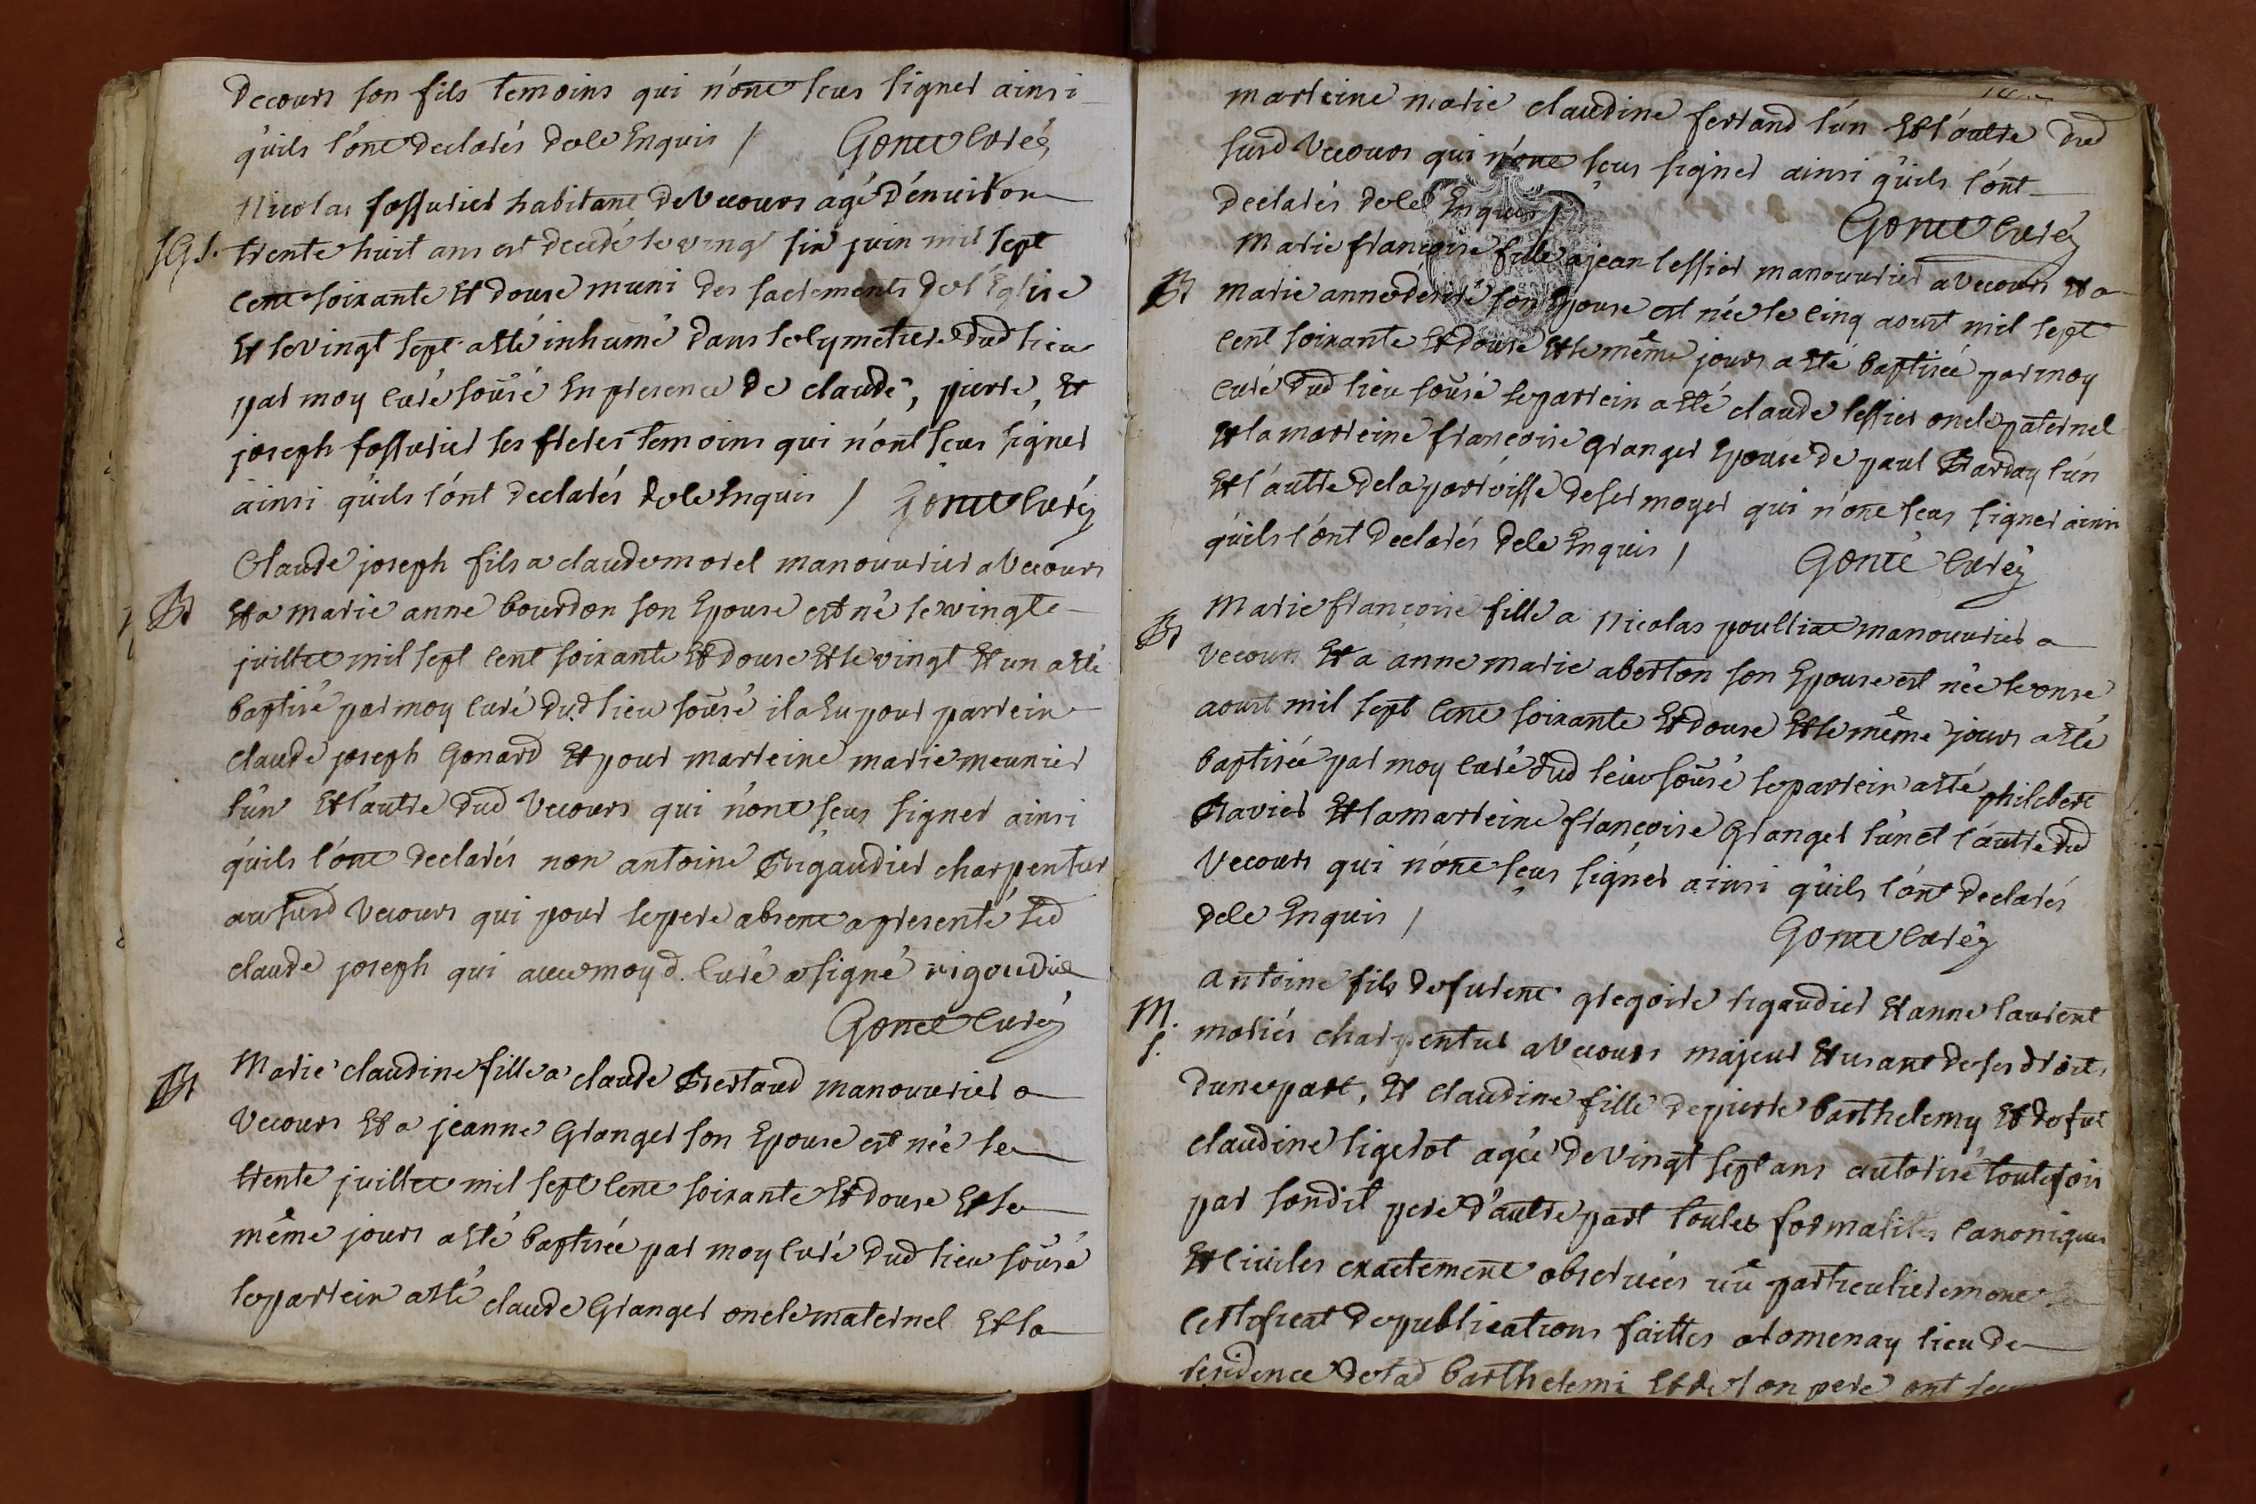 Decours son fils temoins qui n'ont sceus signer ainsi
qu'ils l'ont declarés de le Enquis / Gonet curé
Nicolas fossurier habitant De Vecours agé D'énviron
SGS. trente huit ans est decedé le vingt six juin mil sept
cent soixante Et douse muni des sacrements de l'Eglise
Et le vingt sept a esté inhumé Dans le cymetiere Dud lieu
par moy curé sousé En presence De claude, pierre, Et
joseph fossurier ses freres temoins qui n'ont sceus signer
ainsi qu'ils l'ont declarés de le Enquis / Gonet curé
Claude joseph fils a claude morel manouvrier a Vecours
Bt Et a marie anne bourdon son Epouse est né le vingt
juillet mil sept cent soixante Et douse Et le vingt Et un a esté
baptisé par moy curé dud lieu sousé il a Eu pour parrein
claude joseph Gonard Et pour marreine marie meunier
l'un Et l'autre dud Vecours qui n'ont sçeus signer ainsi
qu'ils l'ont declarés non antoine Rigaudier charpentier
au susd Vecours qui pour le pere absent a presenté led
claude joseph qui avec moy d. curé a signé rigoudie
Gonet curé
Bt Marie claudine fille a claude Bertaud manouvrier a
Vecours Et a jeanne Granger son Epouse est née le
trente juillet mil sept cent soixante Et douse Et le
même jours a esté baptisée par moy curé dud lieu sousé
le parrein a esté claude Granger oncle maternel Et la
marreine marie claudine ferrand l'un Et l'autre dud
susd Vecours qui n'ont sçeus signer ainsi qu'ils l'ont
declarés de le Enquis /
Gonet curé
Marie françoise fille a jean tessier manouvrier a Vecours Et a
Bt marie anne son Epouse est née le cinq aoust mil sept
cent soixante Et douse Et le même jours a esté baptisée par moy
curé dud lieu sousé le parrein a esté claude tessier oncle paternel
Et la marreine françoise Granger Epouse de paul Barday l'un
Et l'autre de la parroisse de sermoyer qui n'ont sceus signer ainsi
qu'ils l'ont declarés de le Enquis /
Gonet curé
Marie françoise fille a Nicolas poulliat manouvrier a
Bt Vecours Et a anne marie aberton son Epouse est née le onse
aoust mil sept cent soixante Et douse Et le même jours a esté
baptisée par moy curé dud lieu sousé le parrein a esté philebert
Ravier Et la marreine françoise Granger l'un et l'autre dud
Vecours qui n'ont sçeus signer ainsi qu'ils l'ont declarés
de le Enquis /
Gonet curé
antoine fils de furent gregoire rigaudier Et anne laurent
M. mariés charpentier a Vecours majeur Et usant de ses droits
S. d'une part, Et claudine fille de pierre barthelemy Et de fut
claudine ligerot agée de Vingt sept ans autorisé toutefois
par sondit pere d'autre part toutes formalités canoniques
Et civiles exactement observées vû particulierement
certificat de publications faittes a romenay lieu de
residence de lad barthelemi Et de son pere ont